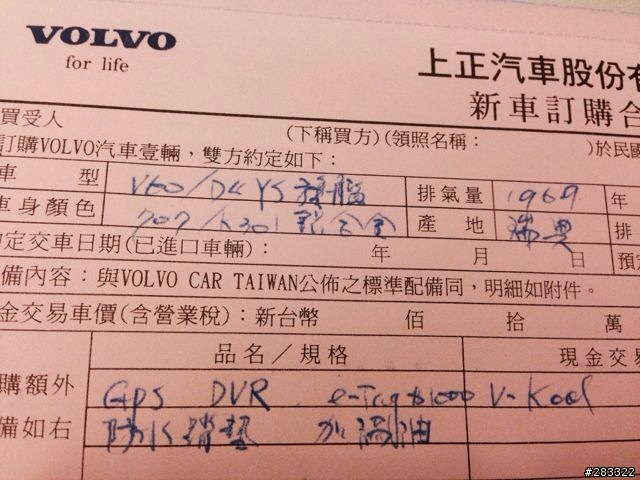 VOLVO
for life
上正汽車股份有
新車訂購合
買受人
(下稱買方)(領照名稱： )於民國
訂購VOLVO汽車壹輛，雙方約定如下：
車 型 V60/D4 Y5旗艦 排氣量 1969 年
車身顏色 707/ 鋁合金 產地 瑞典 排
約定交車日期(已進口車輛)： 年 月 日 預定
備內容：與VOLVO CAR TAIWAN公佈之標準配備同，明細如附件。
金交易車價(含營業稅)：新台幣 佰 拾 萬
品名／規格 現金交易
購額外 GPS DVR e-Tag $1000 V-Kool
備如右 防水 墊 加滿油
#283322